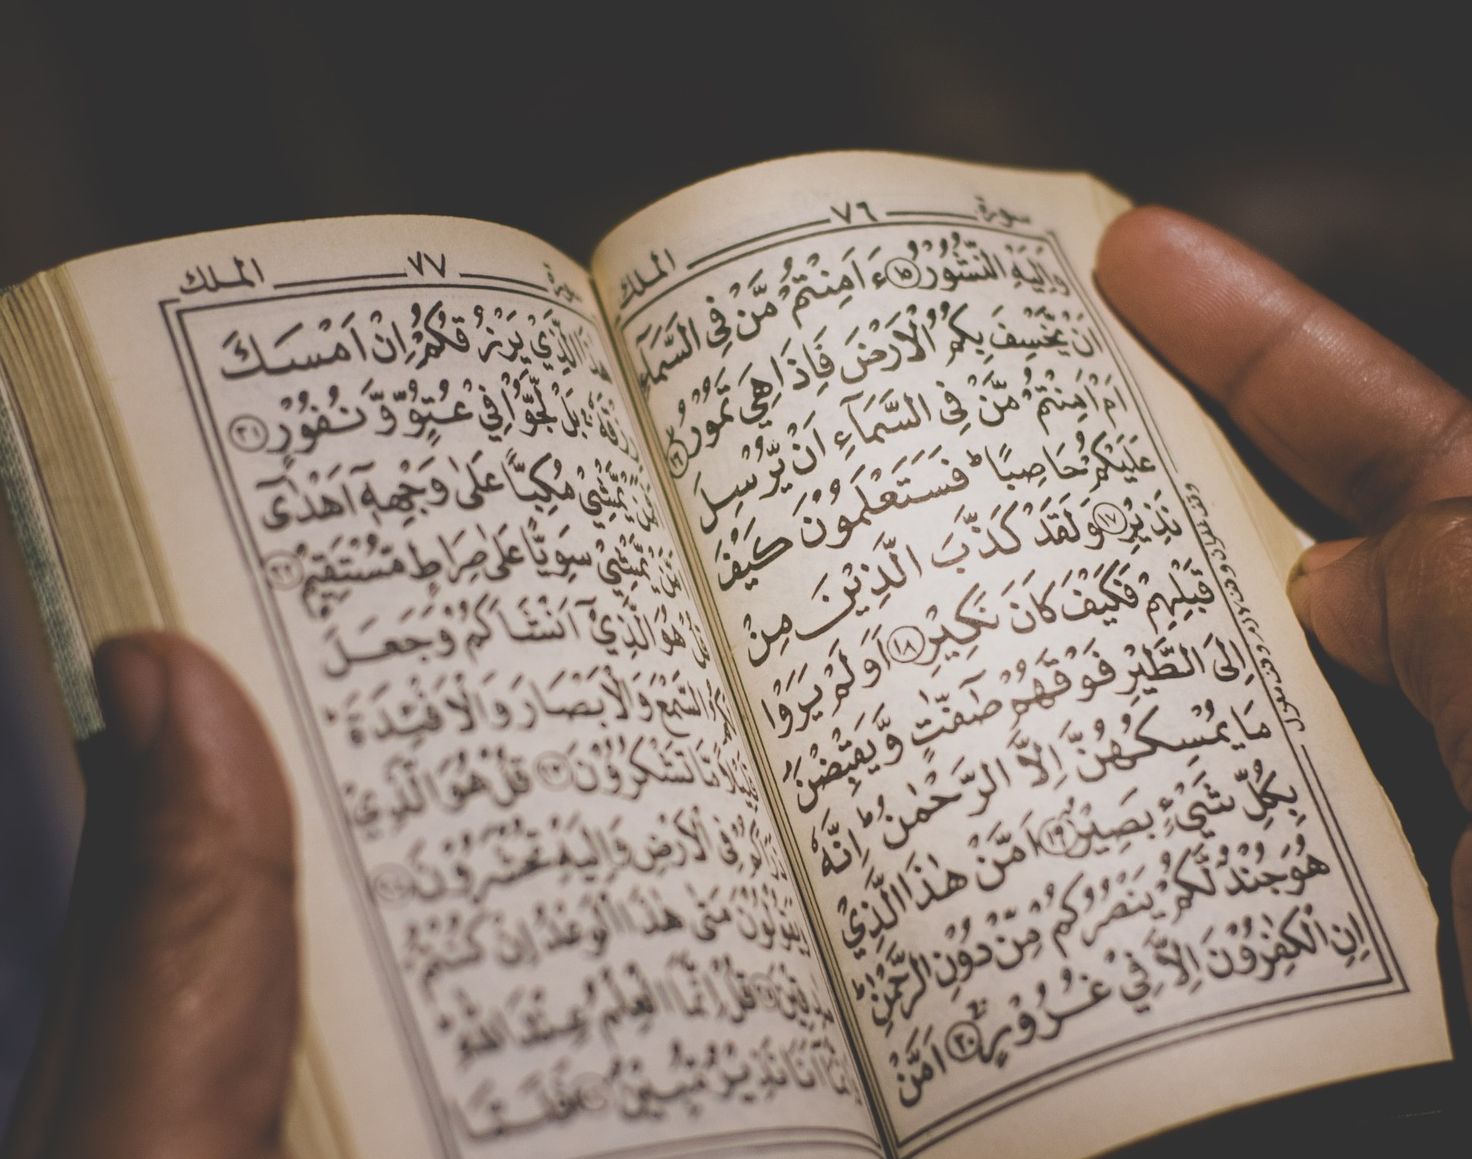 سورة ٧٦ الملك
وَاِلَيْهِ النُّشُوْرُ ﴿١٥﴾ ءَاَمِنْتُمْ مَّنْ فِي السَّمَآءِ
اَنْ يَّخْسِفَ بِكُمُ الْاَرْضَ فَاِذَا هِيَ تَمُوْرُ ﴿١٦﴾
اَمْ اَمِنْتُمْ مَّنْ فِي السَّمَآءِ اَنْ يُّرْسِلَ
عَلَيْكُمْ حَاصِبًا ؕ فَسَتَعْلَمُوْنَ كَيْفَ
نَذِيْرِ ﴿١٧﴾ وَلَقَدْ كَذَّبَ الَّذِيْنَ مِنْ
قَبْلِهِمْ فَكَيْفَ كَانَ نَكِيْرِ ﴿١٨﴾ اَوَلَمْ يَرَوْا
اِلَى الطَّيْرِ فَوْقَهُمْ صٰٓفّٰتٍ وَّيَقْبِضْنَ ؕ
مَا يُمْسِكُهُنَّ اِلَّا الرَّحْمٰنُ ؕ اِنَّهٗ
بِكُلِّ شَيْءٍۭ بَصِيْرٌ ﴿١٩﴾ اَمَّنْ هٰذَا الَّذِيْ
هُوَ جُنْدٌ لَّكُمْ يَنْصُرُكُمْ مِّنْ دُوْنِ الرَّحْمٰنِ ؕ
اِنِ الْكٰفِرُوْنَ اِلَّا فِيْ غُرُوْرٍ ﴿٢٠﴾ اَمَّنْ
سورة ٧٧ الملك
هٰذَا الَّذِيْ يَرْزُقُكُمْ اِنْ اَمْسَكَ
رِزْقَهٗ ۚ بَلْ لَّجُّوْا فِيْ عُتُوٍّ وَّنُفُوْرٍ ﴿٢١﴾
يَّمْشِيْ مُكِبًّا عَلٰى وَجْهِهٖٓ اَهْدٰىٓ
يَّمْشِيْ سَوِيًّا عَلٰى صِرَاطٍ مُّسْتَقِيْمٍ ﴿٢٢﴾
قُلْ هُوَ الَّذِيْٓ اَنْشَاَكُمْ وَجَعَلَ
لَكُمُ السَّمْعَ وَالْاَبْصَارَ وَالْاَفْـِٕدَةَ ؕ
قَلِيْلًا مَّا تَشْكُرُوْنَ ﴿٢٣﴾ قُلْ هُوَ الَّذِيْ
ذَرَاَكُمْ فِي الْاَرْضِ وَاِلَيْهِ تُحْشَرُوْنَ ﴿٢٤﴾
وَيَقُوْلُوْنَ مَتٰى هٰذَا الْوَعْدُ اِنْ كُنْتُمْ
صٰدِقِيْنَ ﴿٢٥﴾ قُلْ اِنَّمَا الْعِلْمُ عِنْدَ اللّٰهِ ۪
وَاِنَّمَآ اَنَا نَذِيْرٌ مُّبِيْنٌ ﴿٢٦﴾ فَلَمَّا